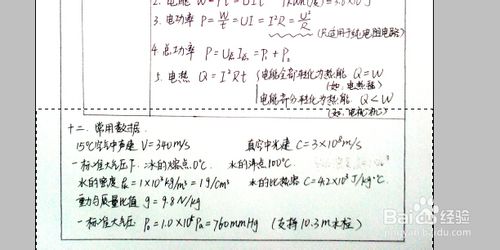 2. 电能 W=Pt=UIt
3. 电功率 P=W/t=UI=I²R=U²/R
(只适用于纯电阻电路)
4. 总功率 P=U总I总=P₁+P₂
5. 电热 Q=I²Rt {电能全部转化为热能 Q=W
(如:电热器)
电能部分转化为热能 Q<W
(如:电动机)
十二. 常用数据.
15℃空气中声速 V=340m/s 真空中光速 C=3×10⁸m/s
一标准大气压下:冰的熔点0℃. 水的沸点100℃.
水的密度 ρ水=1×10³kg/m³=1g/cm³ 水的比热容 C=4.2×10³J/kg·℃
重力与质量比值 g=9.8N/kg
一标准大气压 P₀=1.0×10⁵Pa=760mmHg (支持10.3m水柱)
Baidu经验